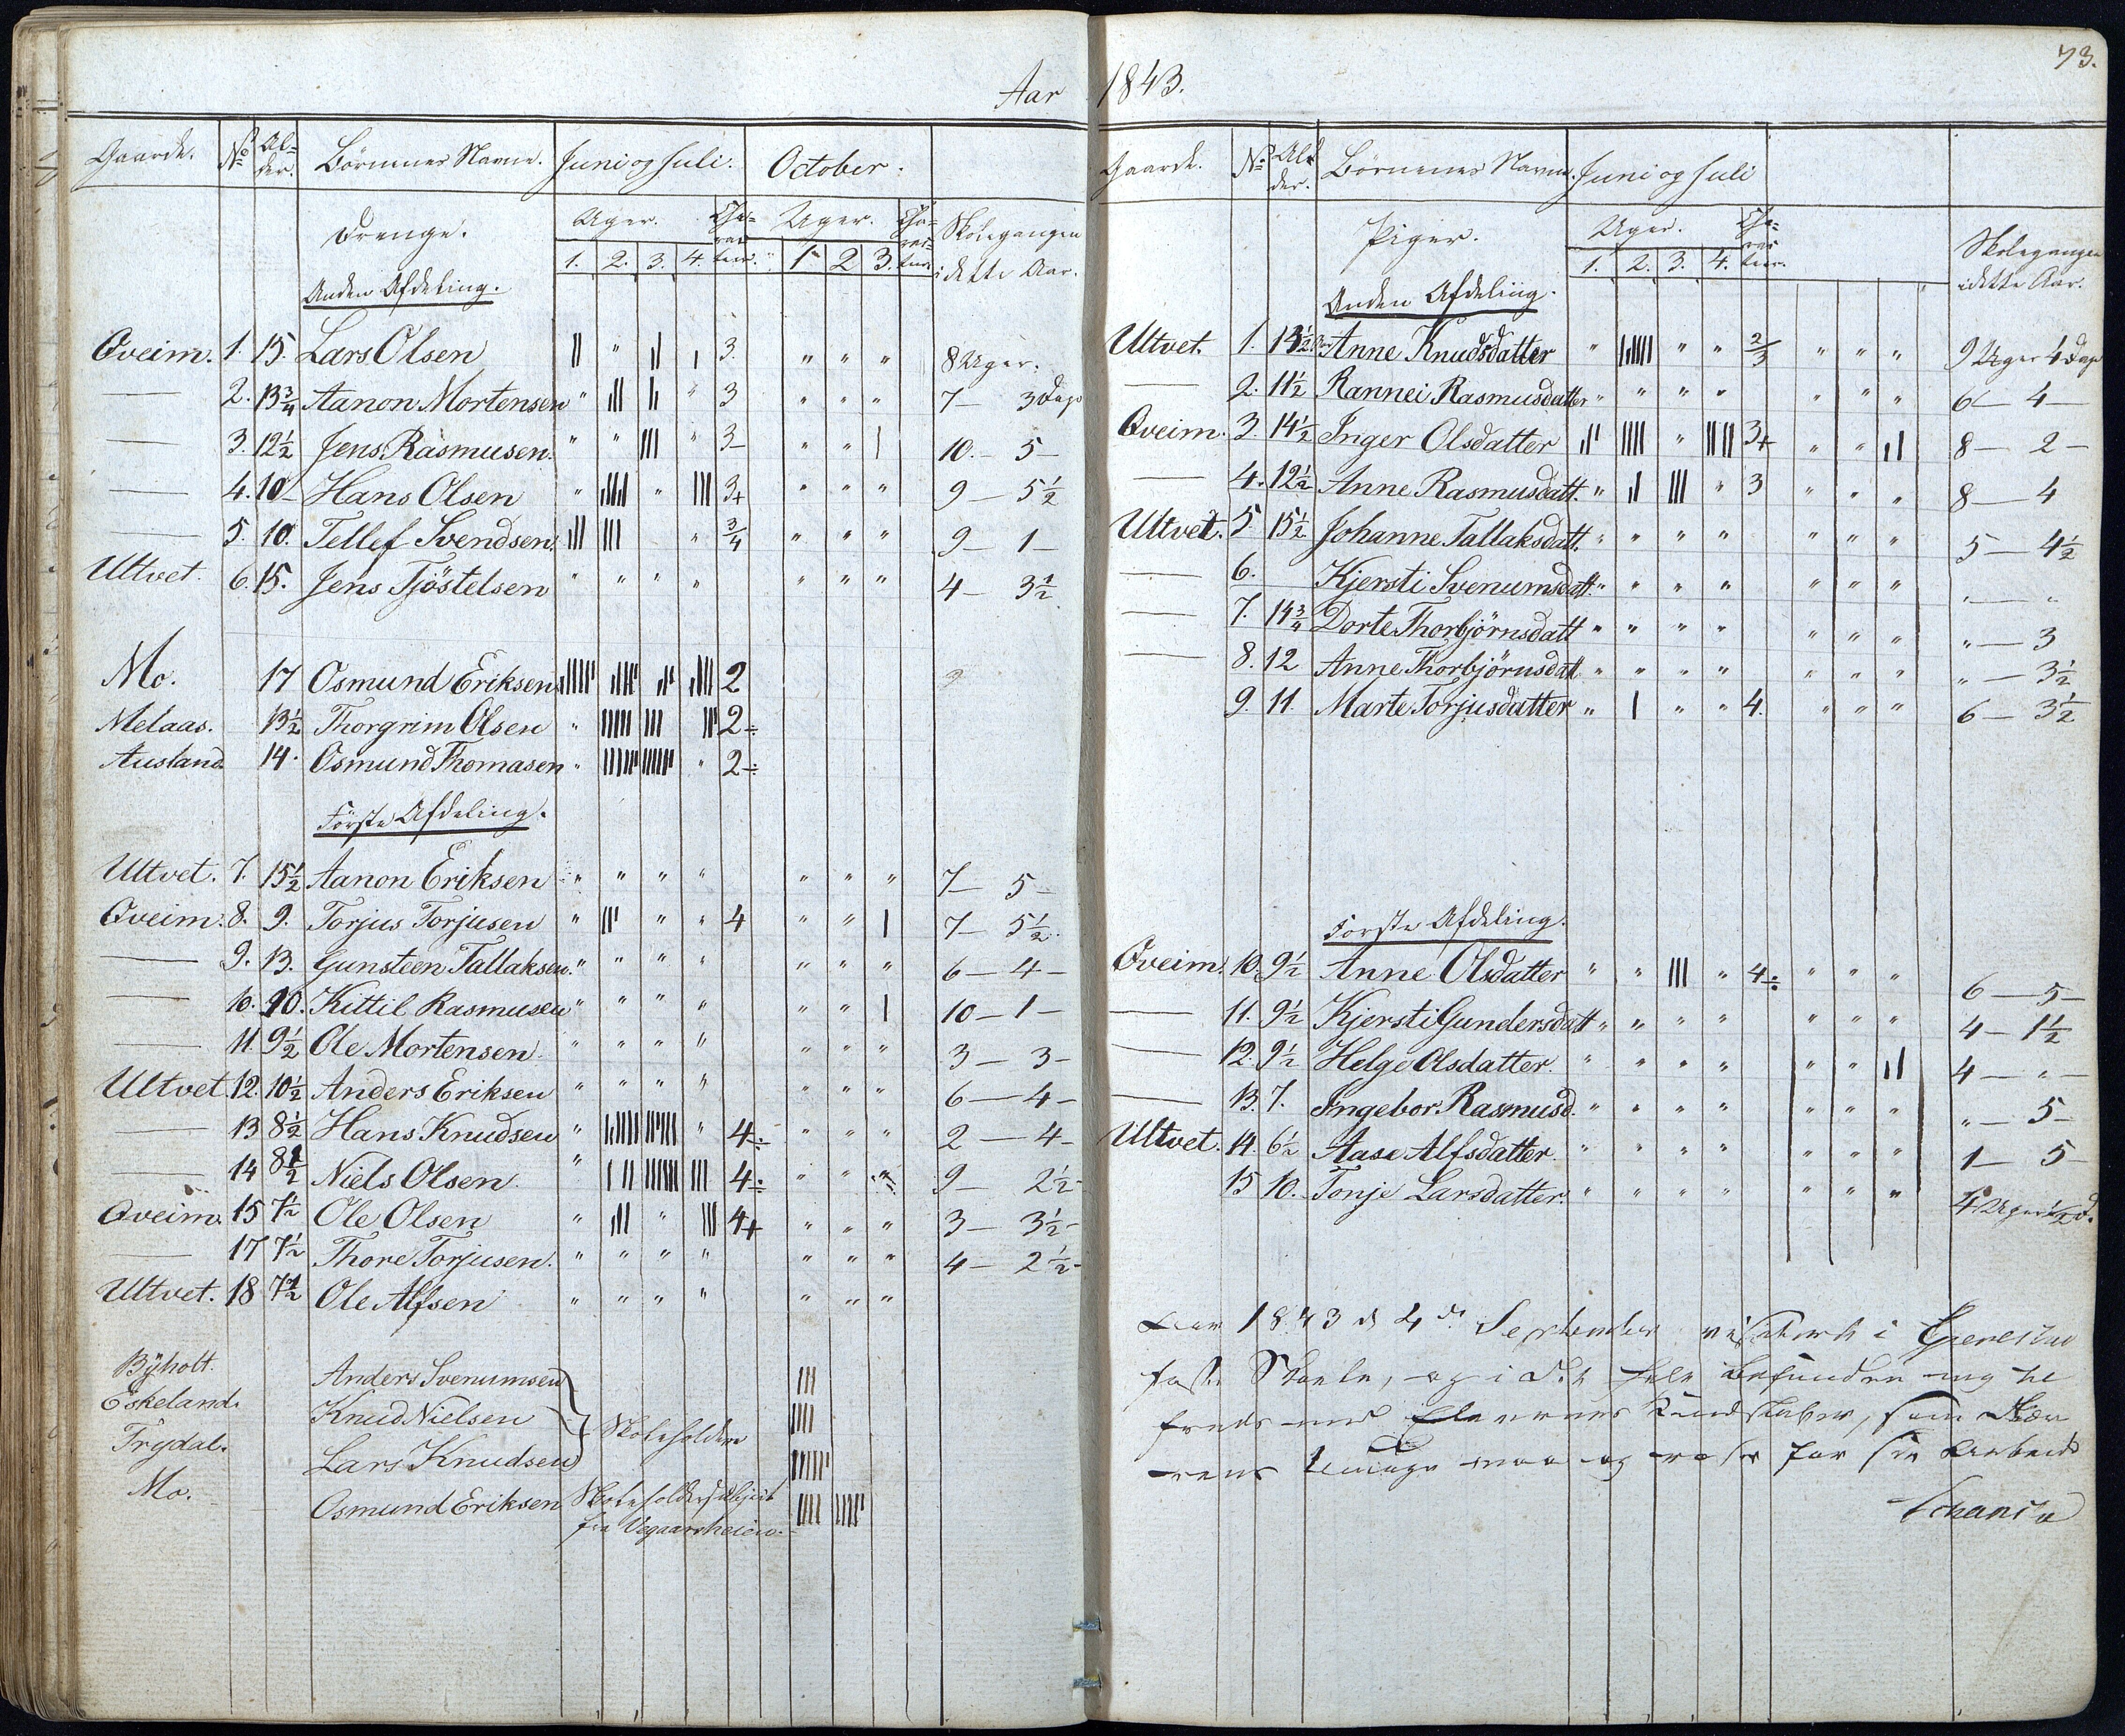 Aar 1843.
73.
Gaarde. No Al-der. Börnenes Navne. Juni og Juli. October.
Drenge. Uger. Cha-rac-teer. Uger. Cha-rac-teer. Skolegangen
1. 2. 3. 4. 1 2 3. i dette Aar.
Anden Afdeling.
Oveim. 1. 15. Lars Olsen || " || | 3. " " " 8 Uger.
— 2. 13 3/4 Aanon Mortensen " ||| || " 3 " " " 7 — 3 Dage
— 3. 12 1/2 Jens Rasmusen. " " ||| " 3- " " | 10. — 5 —
— 4. 10 Hans Olsen " |||| " ||| 3+ " " " 9 — 5 1/2
— 5. 10. Tellef Svendsen. ||| ||| " 3/4 " " " 9 — 1 —
Ultvet. 6. 15. Jens Tjöstelsen " " " " " " " 4 — 3 1/2
Mo. 17 Osmund Eriksen 2
Melaas. 13 1/2 Thorgrim Olsen " ||||| ||| 2÷
Ausland 14. Osmund Thomasen " " 2÷
Förste Afdeling.
Ultvet. 7. 15 1/2 Aanon Eriksen " " " " " " " 7 — 5 —
Oveim. 8. 9. Torjus Torjusen " ||| " " 4 " " | 7 — 5 1/2.
— 9. 13. Gunsteen Tallaksen. " " " " " " " 6 — 4 —
— 10. 10. Kittil Rasmusen " " " " " " | 10 — 1 —
— 11. 9 1/2 Ole Mortensen " " " " " " " 3 — 3 —
Ultvet. 12. 10 1/2 Anders Eriksen " " " " " " " 6 — 4 —
— 13 8 1/2 Hans Knudsen " " 4÷ " " " 2 — 4 —
— 14 8 1/2 Niels Olsen " ||| 4÷ " " " 9 — 2 1/2 —
Oveim. 15 7 1/2 Ole Olsen " ||| " ||| 4+ " " " 3 — 3 1/2 —
— 17 7 1/2 Thore Torjusen. " " " " " " " 4 — 2 1/2 —
Ultvet. 18 7 1/2 Ole Alfsen " " " " " " "
Byholt. Anders Svenumsen |||
Eskeland. Knud Nielsen Skoleholdere ||||
Trydal. Lars Knudsen
Mo. Osmund Eriksen Skoleholdersubject ||||
fra Vegaarsheien.
Gaarde. No Al-der. Börnenes Navne. Juni og Juli
Piger. Uger. Cha-rac-teer. Skolegangen
1. 2. 3. 4. i dette Aar.
Anden Afdeling.
Ultvet. 1. 13 1/2 Anne Knudsdatter " " " 2/3 " " " 9 Uger 4 Dage
— 2. 11 1/2 Rannei Rasmusdatter " " " " " " " 6 — 4 —
Oveim. 3. 14 1/2 Inger Olsdatter ||| |||| " |||| 3+ " " || 8 — 2 —
— 4. 12 1/2 Anne Rasmusdatt. " || ||| " 3 " " " 8 — 4
Ultvet. 5. 15 1/2 Johanne Tallaksdatt. " " " " " " " 5 — 4 1/2
— 6. Kjersti Svenumsdatt. " " " " " " " " — "
— 7. 14 3/4 Dorte Thorbjörnsdatt " " " " " " " " — 3
— 8. 12 Anne Thorbjörnsdatt " " " " " " " " — 3 1/2
9. 11. Marte Torjusdatter " | " " 4. " " " 6 — 3 1/2
Förste Afdeling.
Oveim. 10. 9 1/2 Anne Olsdatter " " ||| " 4÷ " " " 6 — 5 —
— 11. 9 1/2 Kjersti Gundersdatt " " " " " " " 4 — 1 1/2
— 12. 9 1/2 Helge Olsdatter. " " " " " " || 4 — " —
— 13. 7. Ingebor Rasmusd. " " " " " " " " — 5 —
Ultvet. 14. 6 1/2 Aase Alfsdatter. " " " " " " " 1 — 5 —
15 10. Tonje Larsdatter. " " " " " " " 4 Uger 1/2 D.
Aar 1843 d 4de September visiterede i Gjerestad
faste Skoele, og i det hele befunden mig til
freds med Elevernes Kundskaber, som